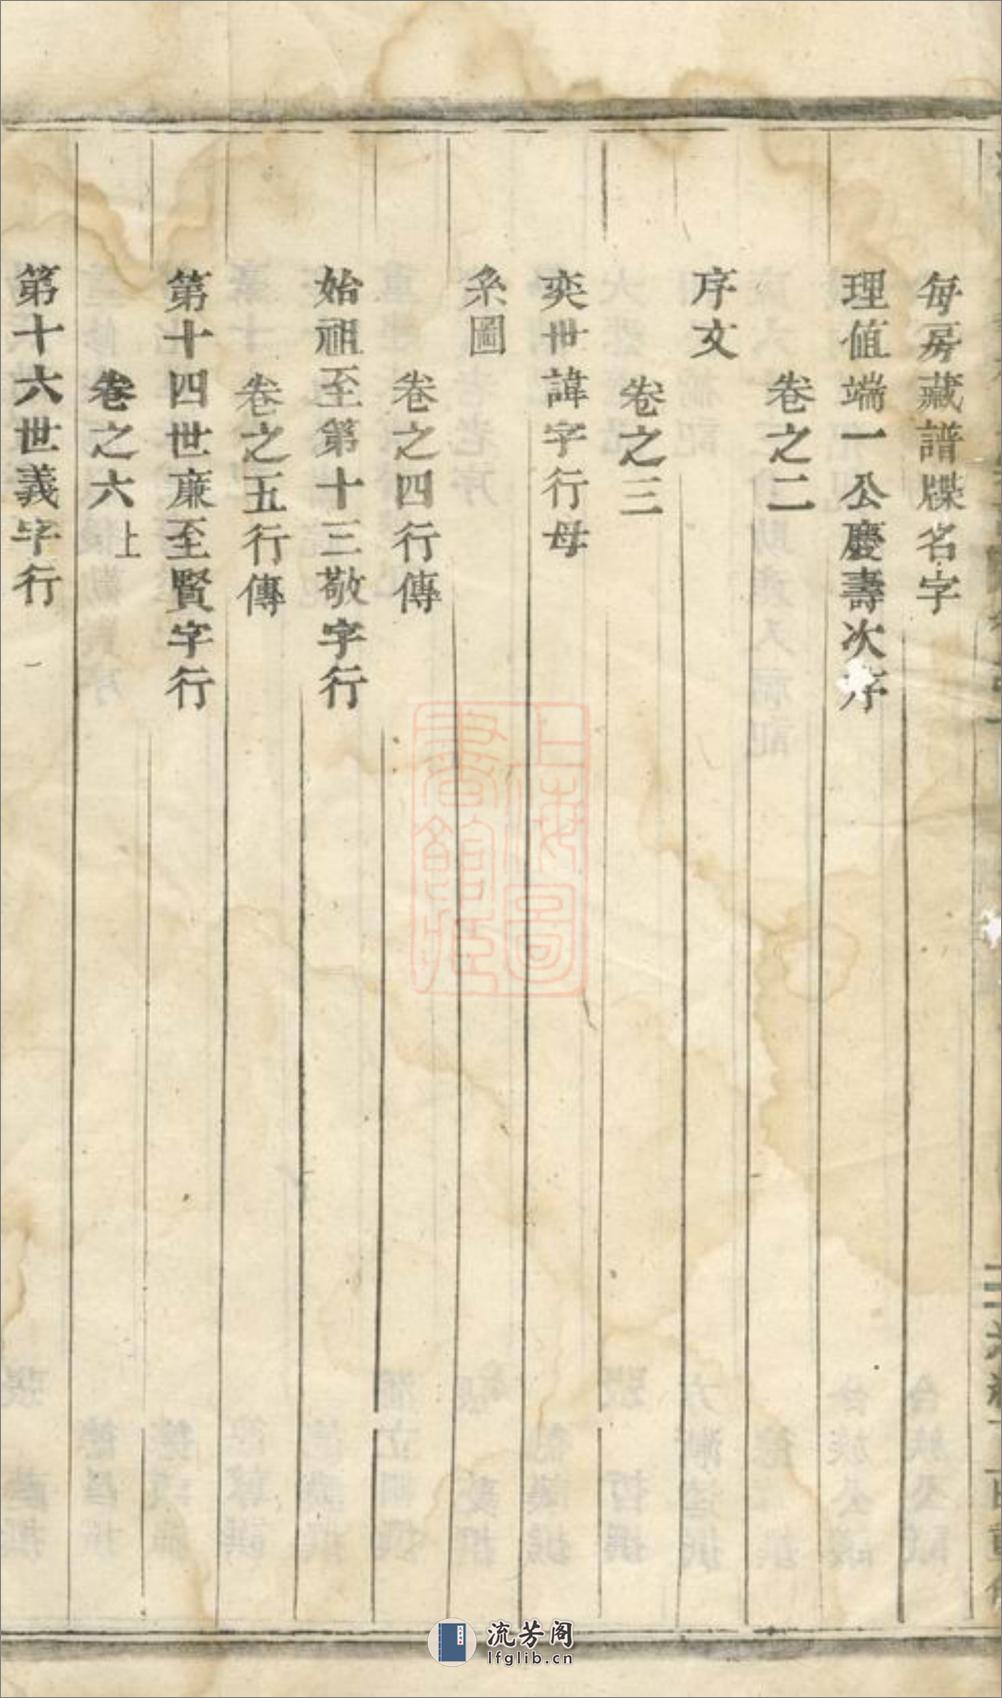 每房藏譜牒名字
理值端一公慶壽次序
卷之二
序文
卷之三
奕世諱字行母
系圖
卷之四行傳
始祖至第十三敬字行
卷之五行傳
第十四世亷至賢字行
卷之六上
第十六世義字行
上海圖書館藏
流芳阁
lfglib.cn